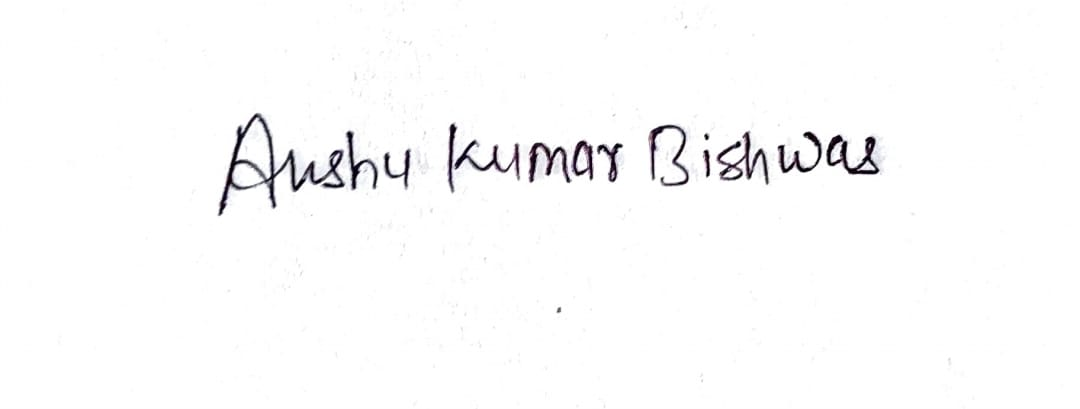 Anshu Kumar Bishwas